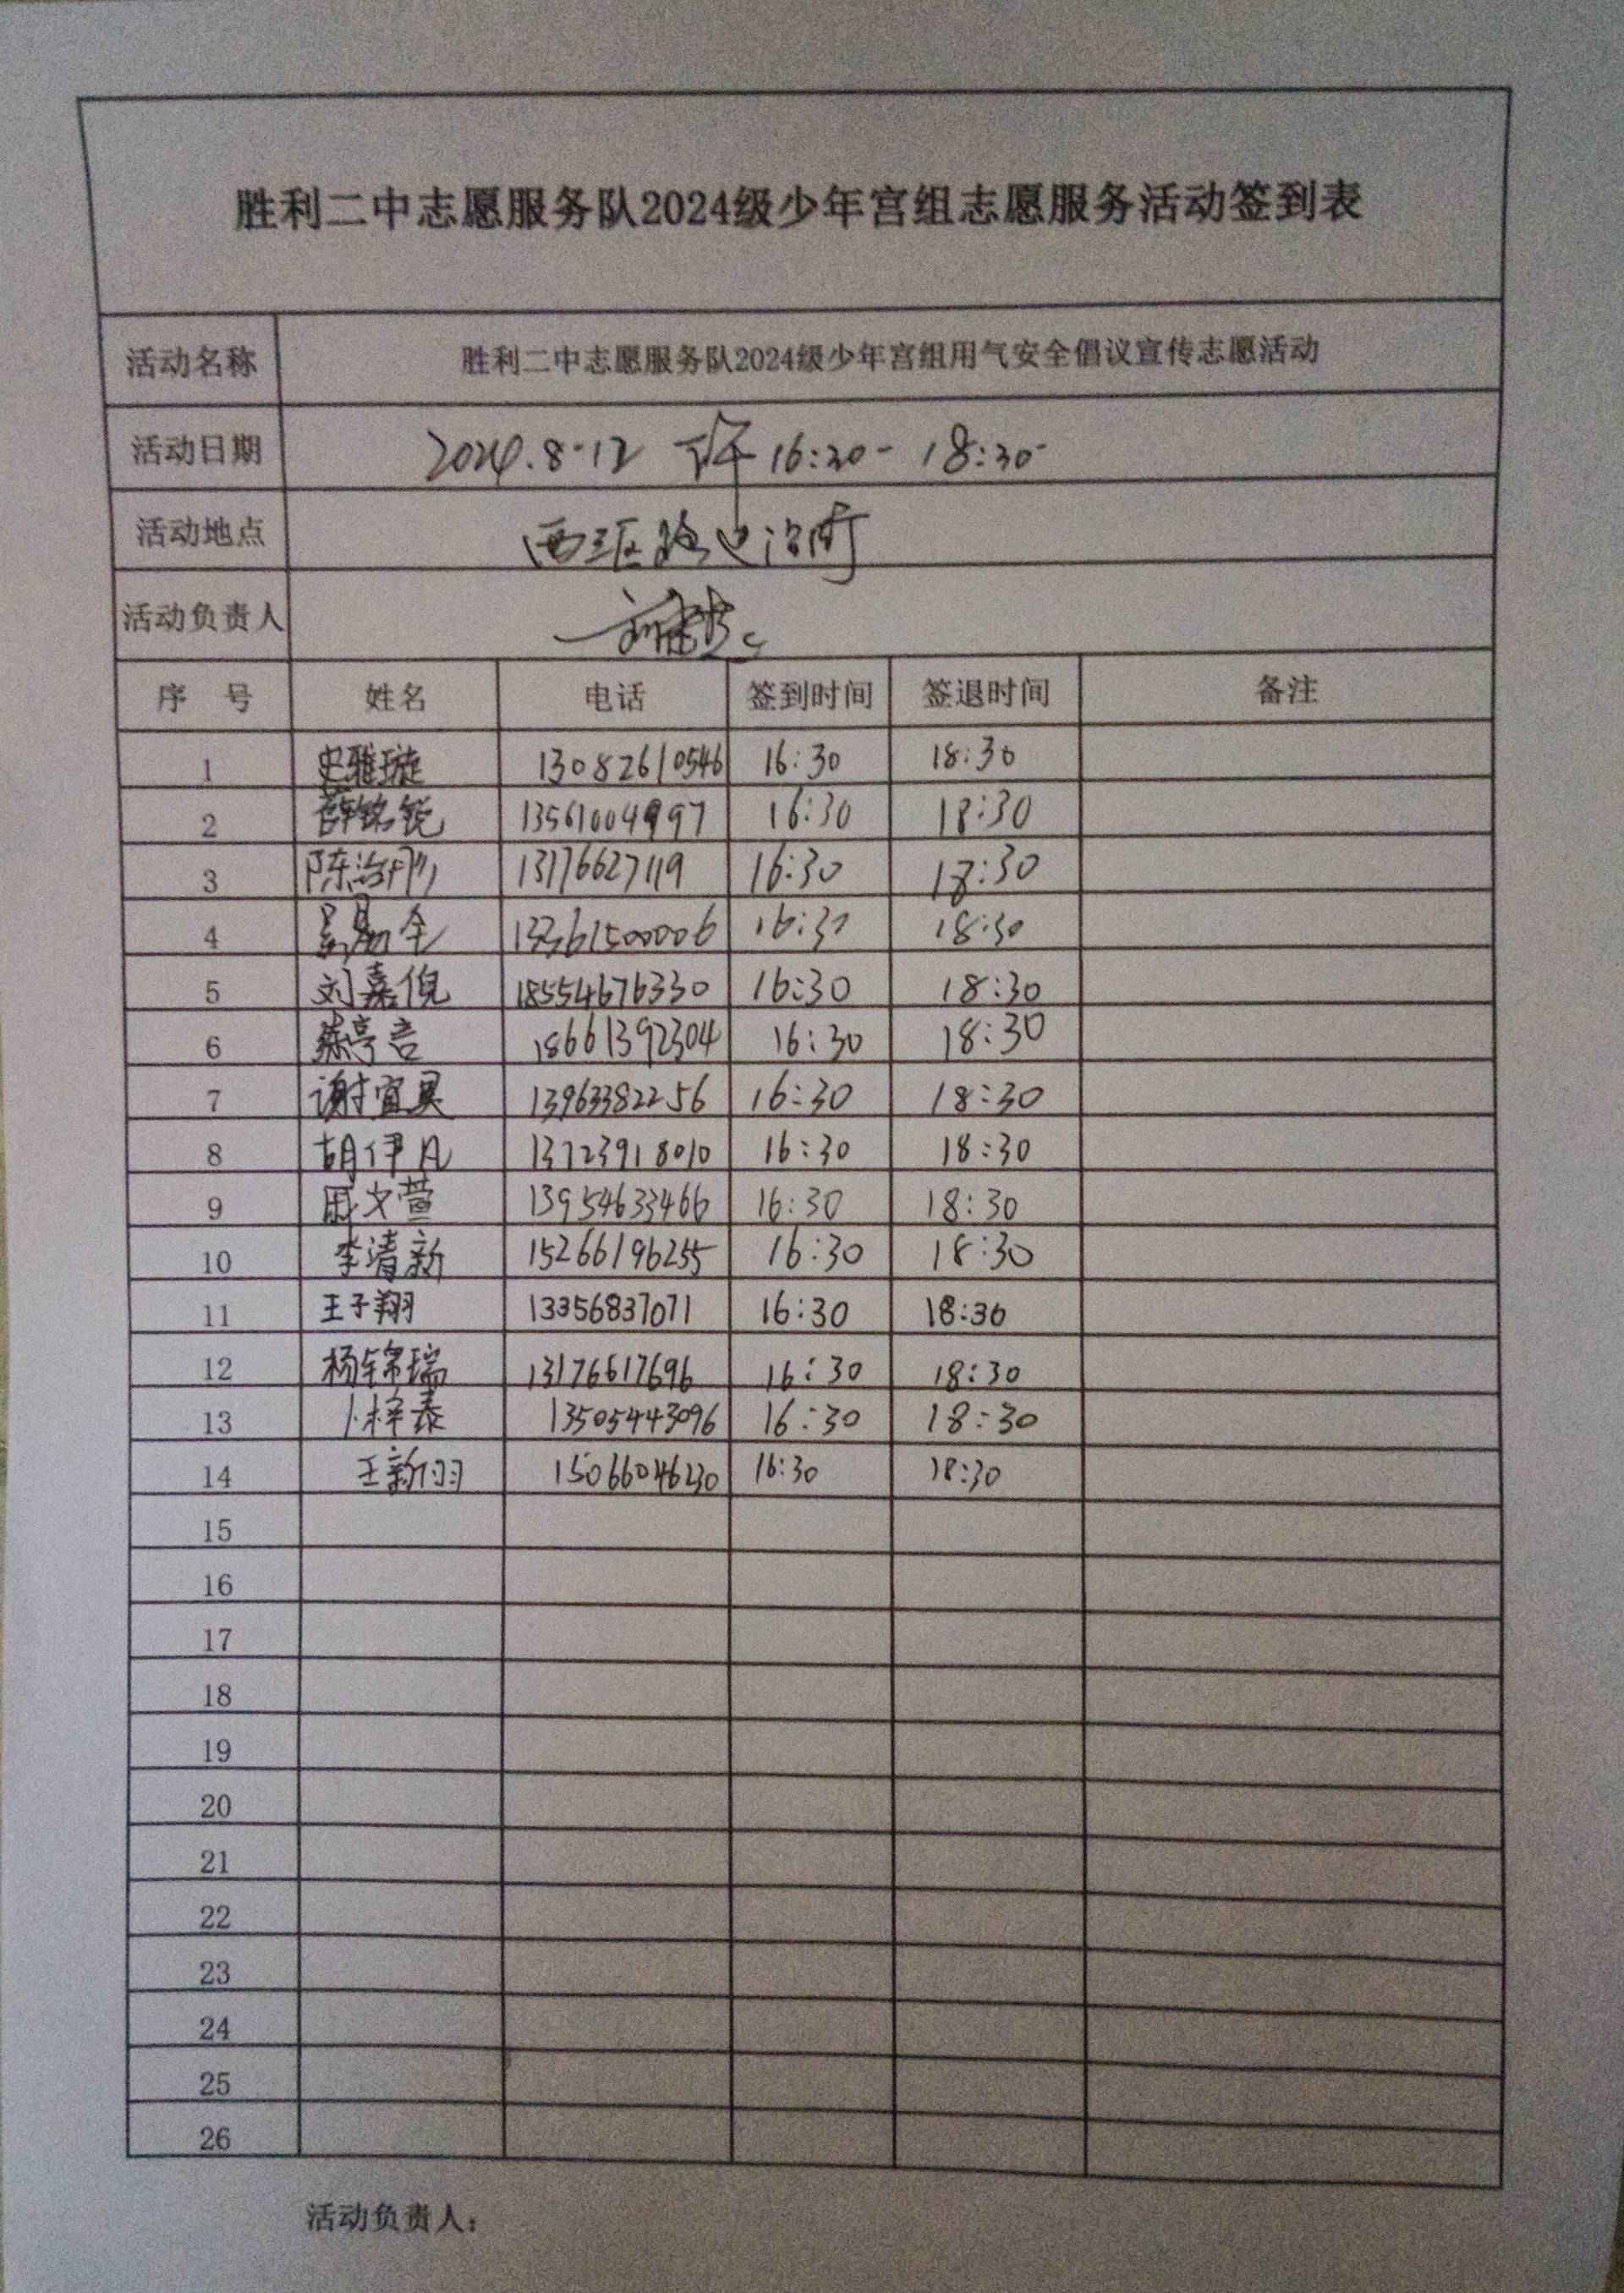 胜利二中志愿服务队2024级少年宫组志愿服务活动签到表
活动名称 胜利二中志愿服务队2024级少年宫组用气安全倡议宣传志愿活动
活动日期 2024.8.12 下午 16:30- 18:30
活动地点
活动负责人
序 号 姓名 电话 签到时间 签退时间 备注
1 史雅璇 13082610546 16:30 18:30
2 薛铭锐 13561004997 16:30 18:30
3 陈治彤 13176627119 16:30 18:30
4 13361500006 16:30 18:30
5 刘嘉倪 18554676330 16:30 18:30
6 綦亭言 18661392304 16:30 18:30
7 谢宜昊 13963382256 16:30 18:30
8 胡伊凡 13723918010 16:30 18:30
9 周文萱 13954633466 16:30 18:30
10 李清新 15266196255 16:30 18:30
11 王子翔 13356837071 16:30 18:30
12 杨锦瑞 13176617696 16:30 18:30
13 卜梓泰 13505443096 16:30 18:30
14 王新羽 15066046230 16:30 18:30
15
16
17
18
19
20
21
22
23
24
25
26
活动负责人：